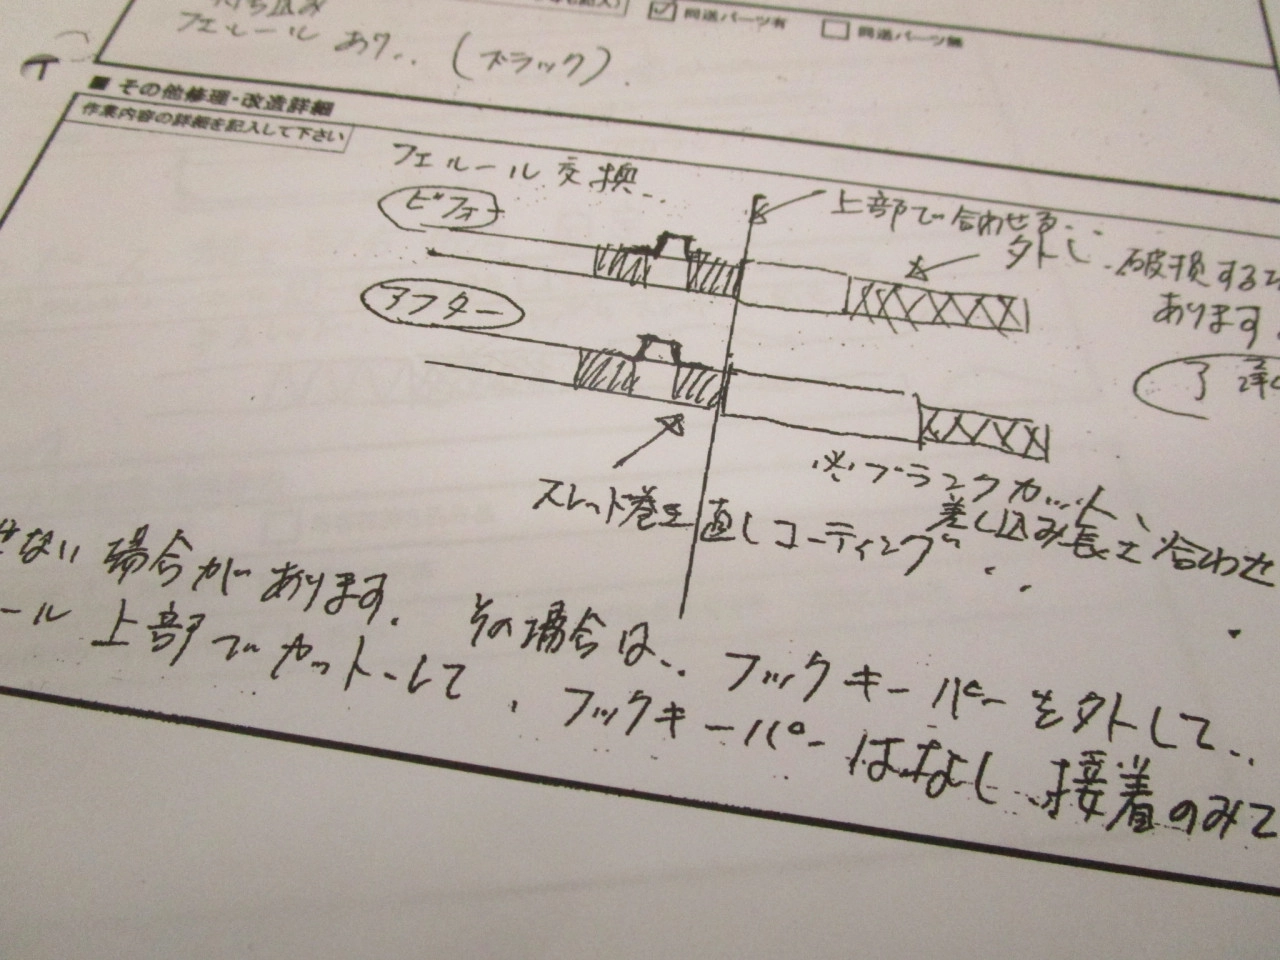 持ち込み
☑ 同送パーツ有 □ 同送パーツ無
フェルール あり.. (ブラック).
■ その他修理・改造詳細
作業内容の詳細を記入して下さい
フェルール 交換..
ビフォー
上部で合わせる..
外し.破損する
あります.
アフター
了承
※ブランクカット、
差し込み長さ合わせ
スレッド巻き直しコーティング..
せない場合があります. その場合は.. フックキーパーを外して..
ール 上部でカットして、フックキーパーはなし、接着のみで